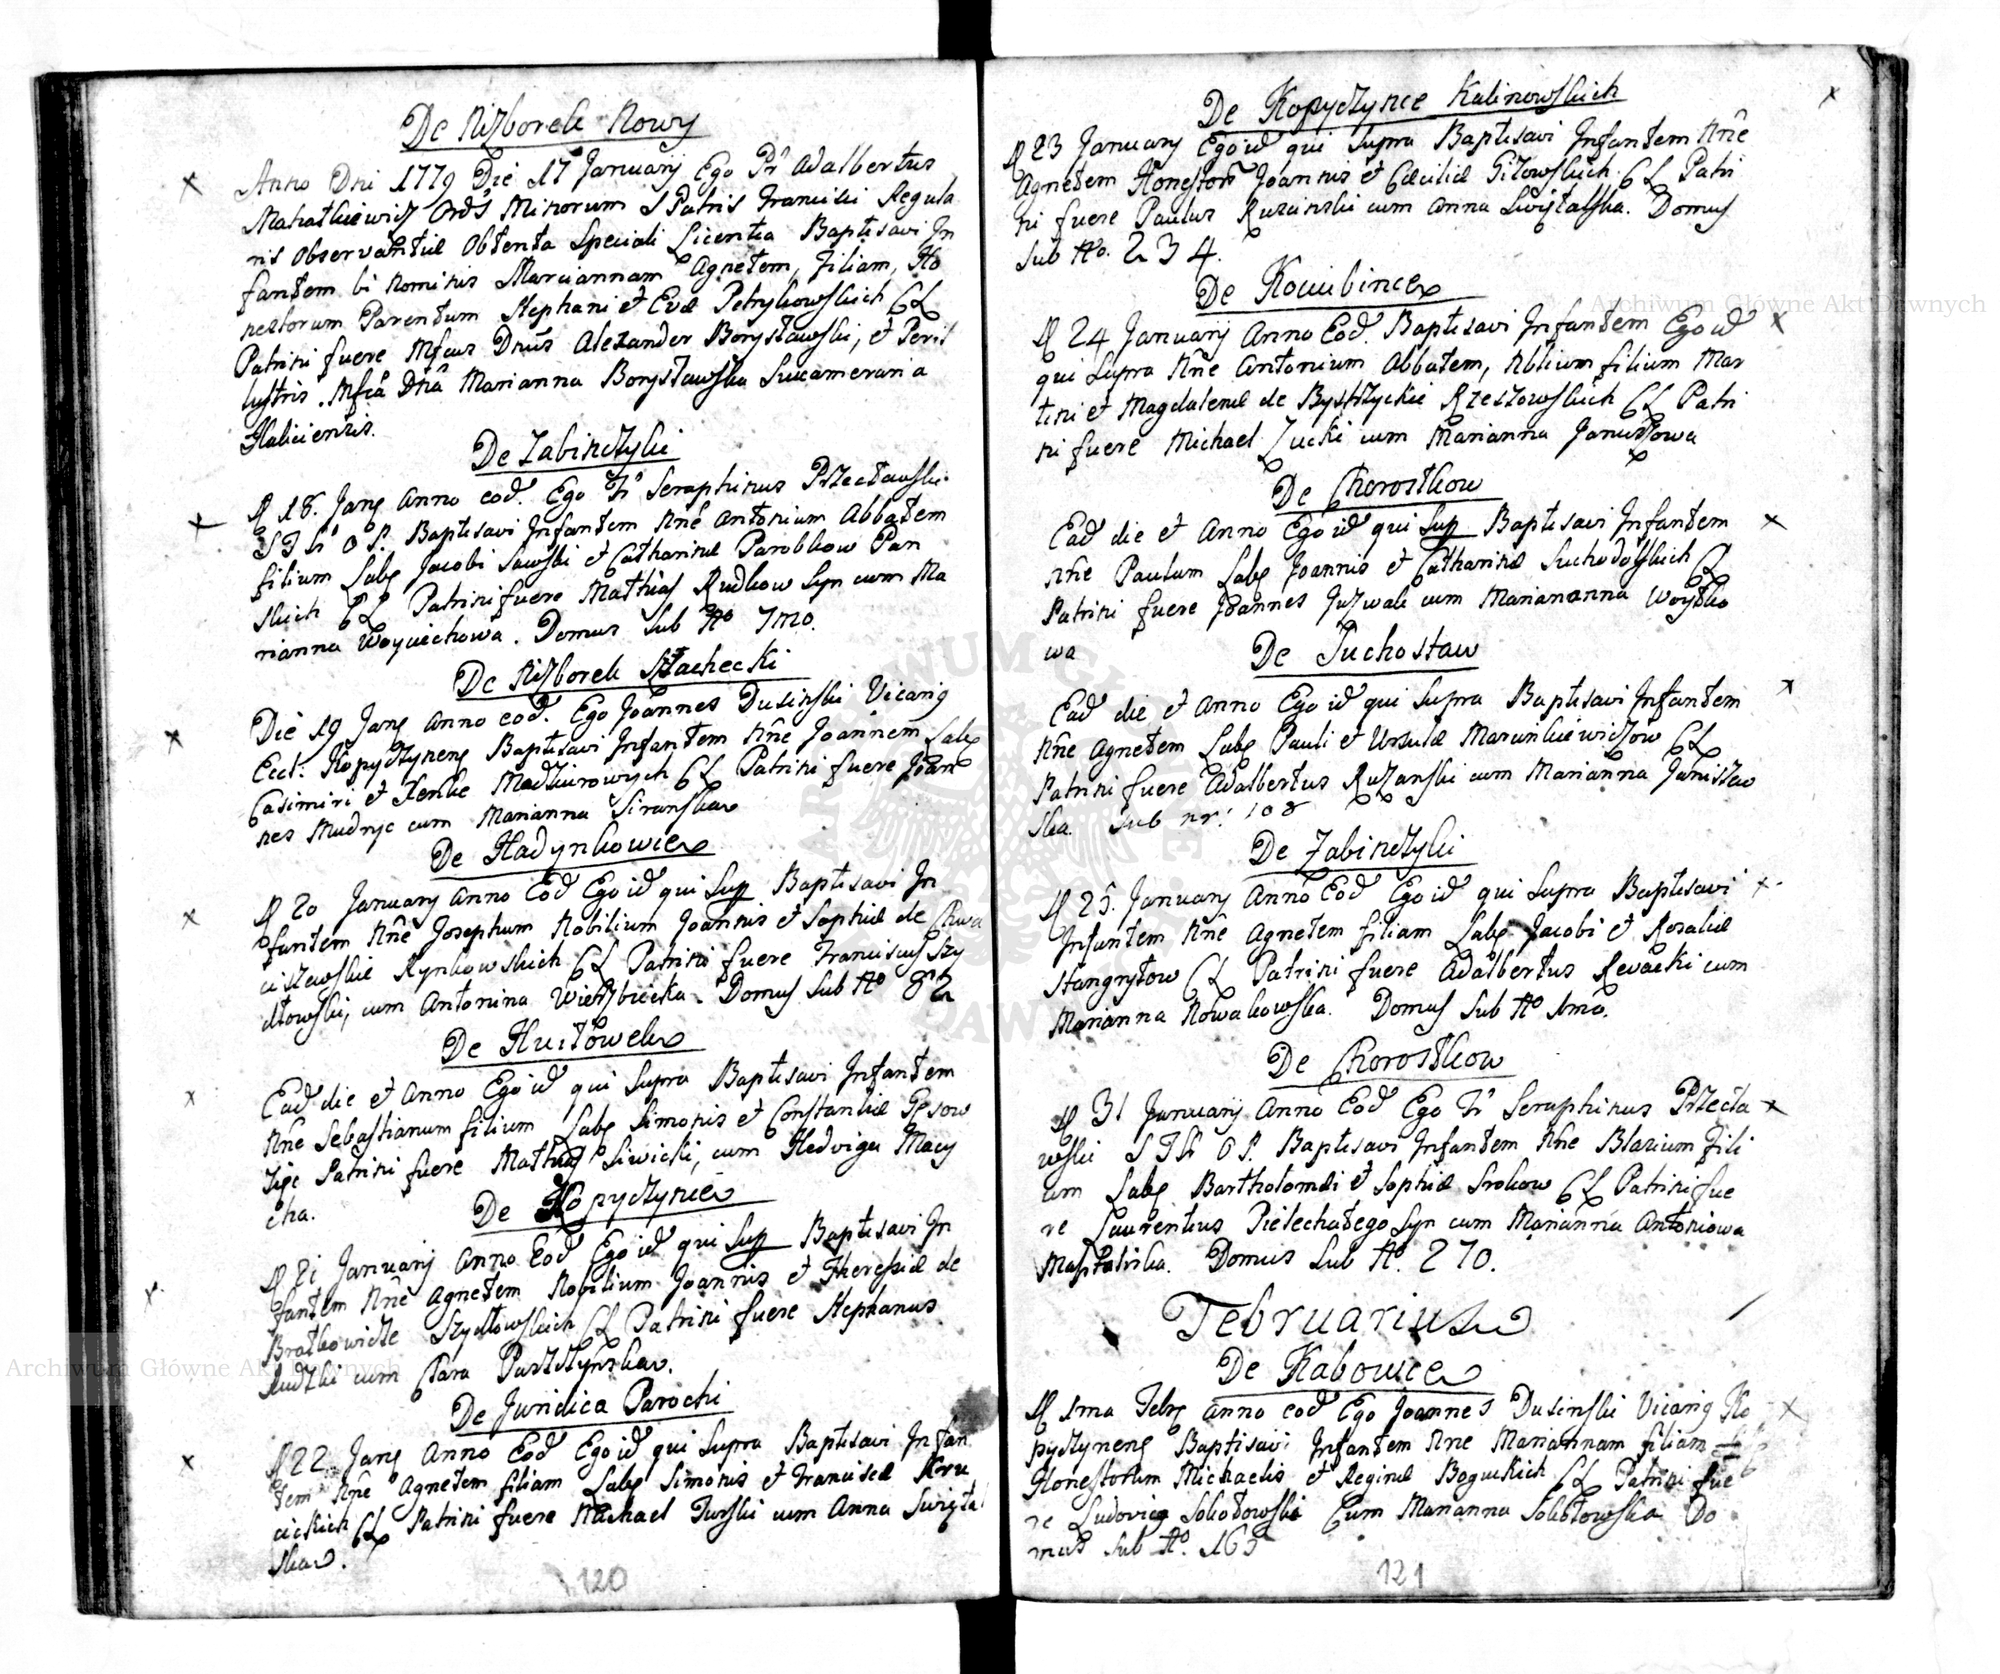 De Nizborek Nowy
Anno Dni 1779 Die 17 Januarij Ego Pr Adalbertus
Makatkiewicz Ords Minorum S Patris Francisci Regula
ris Observantiæ Obtenta Speciali Licentia Baptisavi In
fantem bi nominis Mariannam Agnetem, Filiam, Ho
nestorum Parentum Stephani et Evæ Petrykowskich CL
Patrini fuere Mfcus Dnus Alexander Borysławski, et Peril
lustris. Mfca Dna Marianna Borysławska Succameraria
Haliciensis.
De Zabinczyki
D 18. Jany Anno eod. Ego Fr Seraphinus Przecławski
S T Lr O P. Baptisavi Infantem Nne Antonium Abbatem
filium Laby Jacobi Sawski et Catharinæ Parobkow Pan
skich CL Patrini fuere Mathias Rudkow Syn cum Ma
rianna Woyciechowa. Domus Sub No 7mo.
De Nizborek Szlachecki
Die 19 Jany Anno eod. Ego Joannes Dusinski Vicariy
Eccl: Kopyczyneny Baptisavi Infantem Nne Joannem Laby
Casimiri et Xenke Madziurowych CL Patrini fuere Joan
nes Mudryc cum Marianna Siranska
De Hadynkowie
D 20 Januarij Anno Eod Ego id qui Supp Baptisavi In
fantem Nne Josephum Nobilium Joannis et Sophiæ de Chwa
ciszewskie Rynkowskich CL Patrini fuere Franciscus Szy
dłowski, cum Antonina Wierzbicka. Domus Sub No 82
De Huitowek
Ead die et Anno Ego id qui Supra Baptisavi Infantem
Nne Sebastianum filium Laby Simonis et Constantiæ Pisow
Zyje Patrini fuere Mathias Siwicki, cum Hedviga Macy
cha.
De Kopyczynie
D 21 Januarij Anno Eod Ego id qui Supp Baptisavi In
fantem Nne Agnetem Nobilium Joannis et Theressiæ de
Bratkowicze Szydłowskich CL Patrini fuere Stephanus
Rudzki cum Clara Paszczynska.
De Juridica Parochi
D 22 Jany Anno Eod Ego id qui Supra Baptisavi Infan
tem Nne Agnetem filiam Laby Simonis et Franciscæ Kru
cickich CL Patrini fuere Michael Turski cum Anna Swistal
ska.
120
De Kopyczynce Kalinowskich
D 23 January Ego id qui Supra Baptisavi Infantem Nne
Agnetem Honestor Joannis et Cæciliæ Gizowskich CL Patri
ni fuere Paulus Ruscinski cum Anna Swistalska. Domus
Sub No. 234.
De Kociubince
D 24 Januarij Anno Eod. Baptisavi Infantem Ego id
qui Supra Nne Antonium Abbatem, Nblium filium Mar
tini et Magdalenæ de Bystrzyckie Rzeszowskich CL Patri
ni fuere Michael Zucki cum Marianna Januszowa
De Chorostkow
Ead die et Anno Ego id qui Supp Baptisavi Infantem
Nne Paulum Laby Joannis et Catharinæ Suchodolskich CL
Patrini fuere Joannes Juzwak cum Mariananna Woytko
wa
De Suchostaw
Ead die et Anno Ego id qui Supra Baptisavi Infantem
Nne Agnetem Laby Pauli et Ursulæ Marcinkiewiczow CL
Patrini fuere Adalbertus Ruzanski cum Marianna Janiszew
ska. Sub nr: 108
De Zabinczyki
D 25. January Anno Eod Ego id qui Supra Baptisavi
Infantem Nne Agnetem filiam Laby Jacobi et Rosaliæ
Stangrytow CL Patrini fuere Adalbertus Revacki cum
Marianna Nowakowska. Domus Sub No 1mo.
De Chorostkow
D 31 Januarij Anno Eod Ego Fr Seraphinus Przecła
wski S T Lr O P. Baptisavi Infantem Nne Blasium fili
um Laby Bartholomæi et Sophiæ Srokow CL Patrini fue
re Laurentius Pielechatego Syn cum Marianna Antoniowa
Masztalirka. Domus Sub No. 270.
Februarius
De Kabowce
D 1ma Feby Anno eod Ego Joannes Dusinski Vicariy Ko
pyczyneny Baptisavi Infantem Nne Mariannam filiam
Honestorum Michaelis et Reginæ Boguckich CL Patrini fue
re Ludovicy Sokołowski Cum Marianna Sokołowska Do
mus Sub No. 165
121
Archiwum Główne Akt Dawnych
Archiwum Główne Akt Dawnych